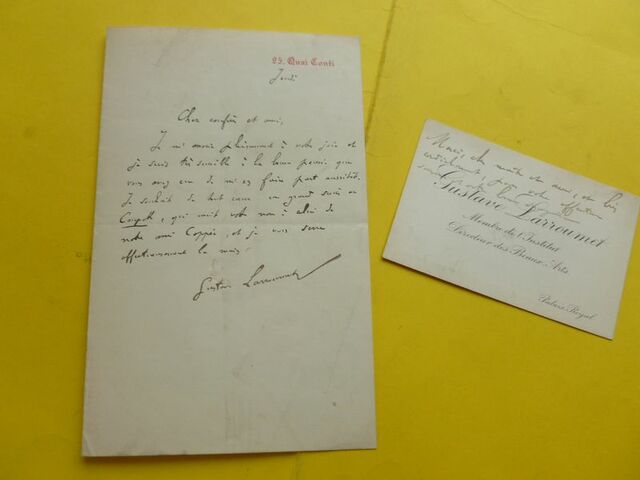 25. Quai Conti
Jeudi
Cher confrère et ami,
Je m'associe pleinement à votre joie et
je suis très sensible à la bonne pensée que
vous avez eue de m'en faire part aussitôt.
Je souhaite de tout cœur un grand succès au
Coupole, qui unit votre nom à celui de
notre ami Coppée, et je vous serre
affectueusement la main.
Gustave Larroumet
Merci, cher maître et ami, de
cordialement, votre
Gustave Larroumet
Membre de l'Institut
Directeur des Beaux-Arts
Palais-Royal